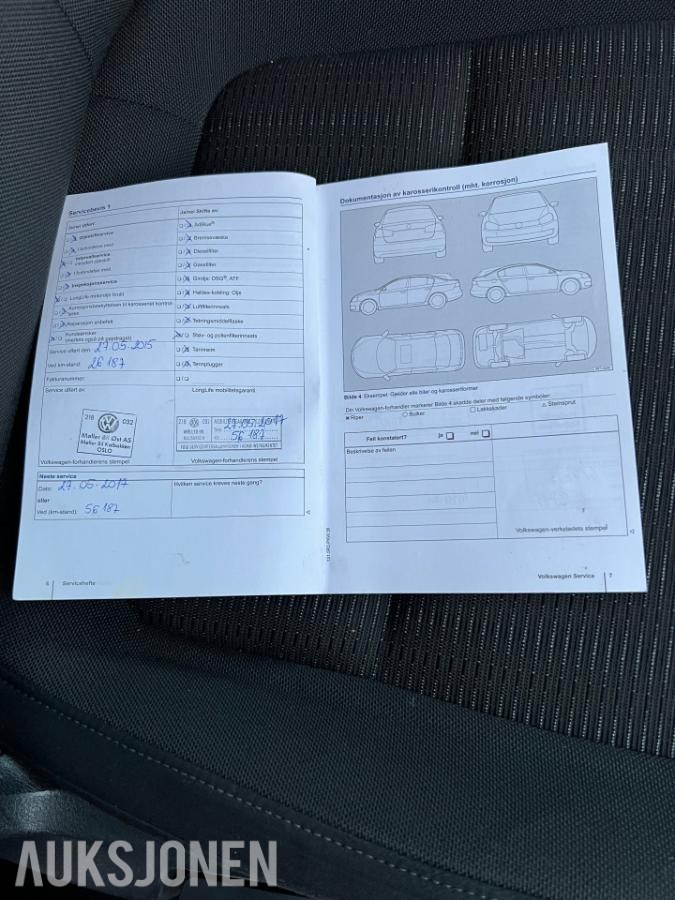 Servicebevis 1
Ja/nei utført:
Ja/nei Skifte av:
Oljeskiftservice
AdBlue®
I forbindelse med
Bremsevæske
Intervallservice
Dieselfilter
I forbindelse med
Gassfilter
Inspeksjonsservice
Girolje: DSG®, ATF
LongLife motorolje brukt
Haldex-kobling: Olje
Luftfilterinnsats
Reparasjon anbefalt
Tetningsmiddelflaske
Kundeønsker
(merkes også på gjøredraget)
Støv- og pollenfilterinnsats
Service utført den: 27.05.2015
Tannreim
Ved km-stand: 26 187
Tennplugger
Fakturanummer:
Service utført av:
LongLife mobilitetsgaranti
218 032
Møller Bil Øst AS
Møller Bil Kalbakken
OSLO
27.05.2017
56 187
Volkswagen-forhandlerens stempel
Volkswagen-forhandlerens stempel
Neste service
Dato: 27.05.2017
Hvilken service kreves neste gang?
eller
Ved (km-stand): 56 187
6 Servicehefte
Dokumentasjon av karosserikontroll (mht. korrosjon)
Bilde 4 Eksempel: Gjelder alle biler og karosseriformer
Din Volkswagen-forhandler markerer Bilde 4 skadde deler med følgende symboler:
Riper
Bulker
Lakkskader
Steinsprut
Feil konstatert? ja nei
Beskrivelse av feilen
Volkswagen-verkstedets stempel
Volkswagen Service 7
AUKSJONEN